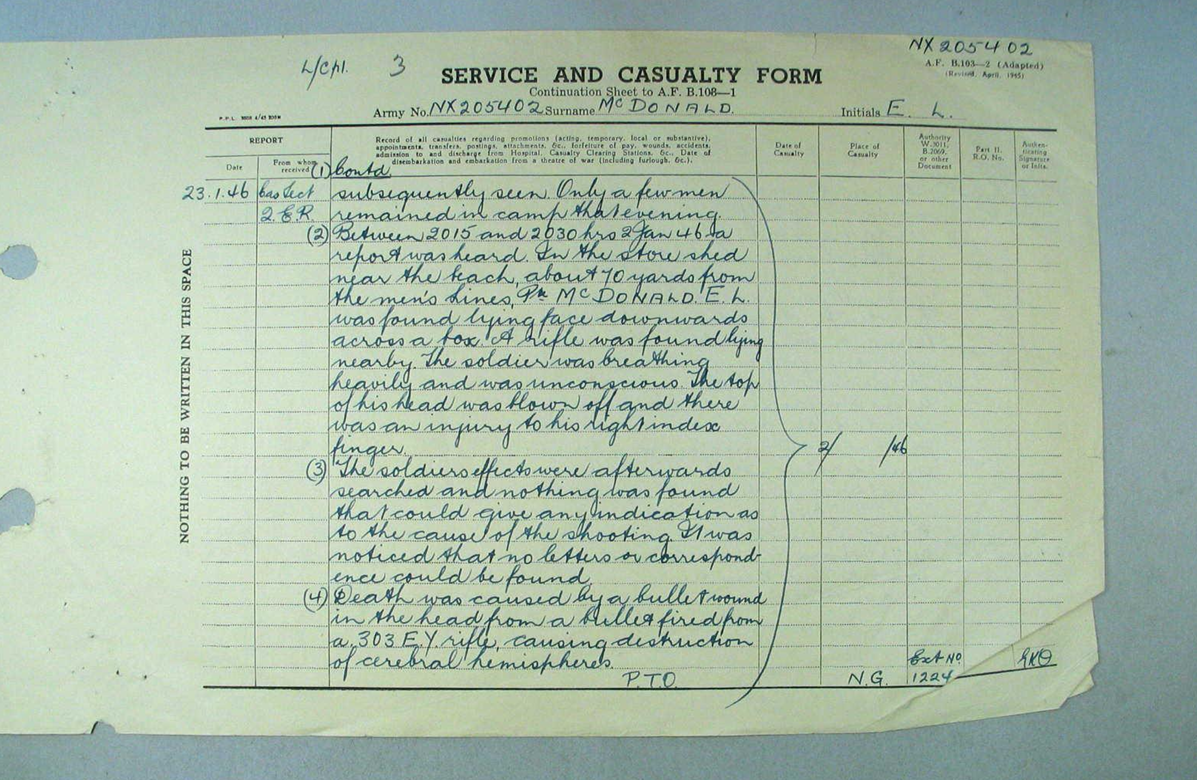 NX205402
L/Cpl. 3
SERVICE AND CASUALTY FORM
A.F. B.103—2 (Adapted)
(Revised, April, 1945)
Continuation Sheet to A.F. B.108—1
Army No. NX205402 Surname McDONALD. Initials E. L.
REPORT
Record of all casualties regarding promotions (acting, temporary, local or substantive),
appointments, transfers, postings, attachments, &c., forfeiture of pay, wounds, accidents,
admission to and discharge from Hospital, Casualty Clearing Stations, &c. Date of
disembarkation and embarkation from a theatre of war (including furlough, &c.).
Date
From whom received
Date of Casualty
Place of Casualty
Authority W.3011, B.2069, or other Document
Part II. R.O. No.
Authenticating Signature or Initls.
NOTHING TO BE WRITTEN IN THIS SPACE
(1) Contd
23.1.46 Cas Sect subsequently seen. Only a few men
2.E.R. remained in camp that evening.
(2) Between 2015 and 2030 hrs 2 Jan 46 a
report was heard. In the store shed
near the beach, about 70 yards from
the men's lines, Pte McDONALD. E. L.
was found lying face downwards
across a box. A rifle was found lying
nearby. The soldier was breathing
heavily and was unconscious. The top
of his head was blown off and there
was an injury to his right index
finger. 2/ /46
(3) The soldiers effects were afterwards
searched and nothing was found
that could give any indication as
to the cause of the shooting. It was
noticed that no letters or correspond-
ence could be found.
(4) Death was caused by a bullet wound
in the head from a bullet fired from
a .303 E.Y. rifle, causing destruction
of cerebral hemispheres. Ext No
P.T.O. N.G. 1224